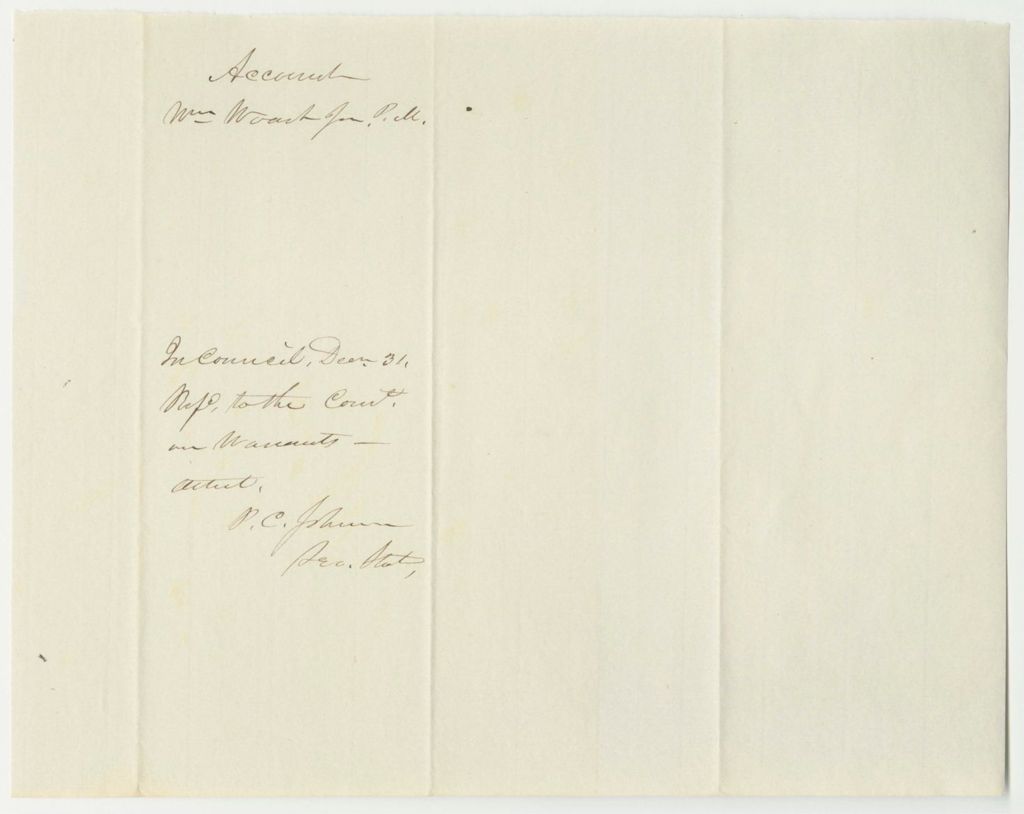 Account
Wm Woart Jr. P.M.
In Council, Decr 31.
Refd. to the Comt.
on Warrants —
attest.
P. C. Johnson
Sec. State,